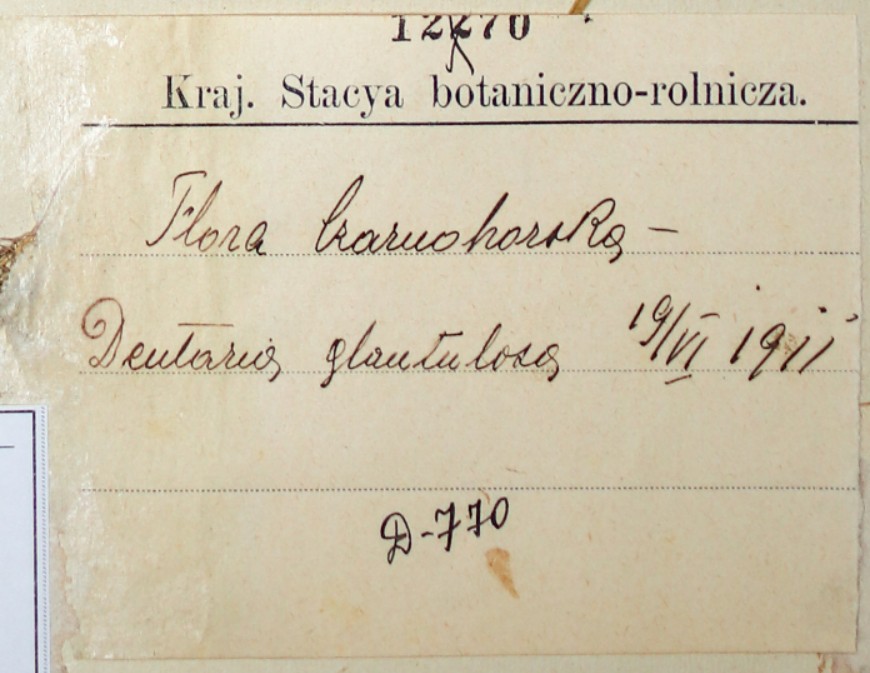 12270
Kraj. Stacya botaniczno-rolnicza.
Flora Czarnohorska -
Dentaria glantulosa 19/VI 1911
D-770